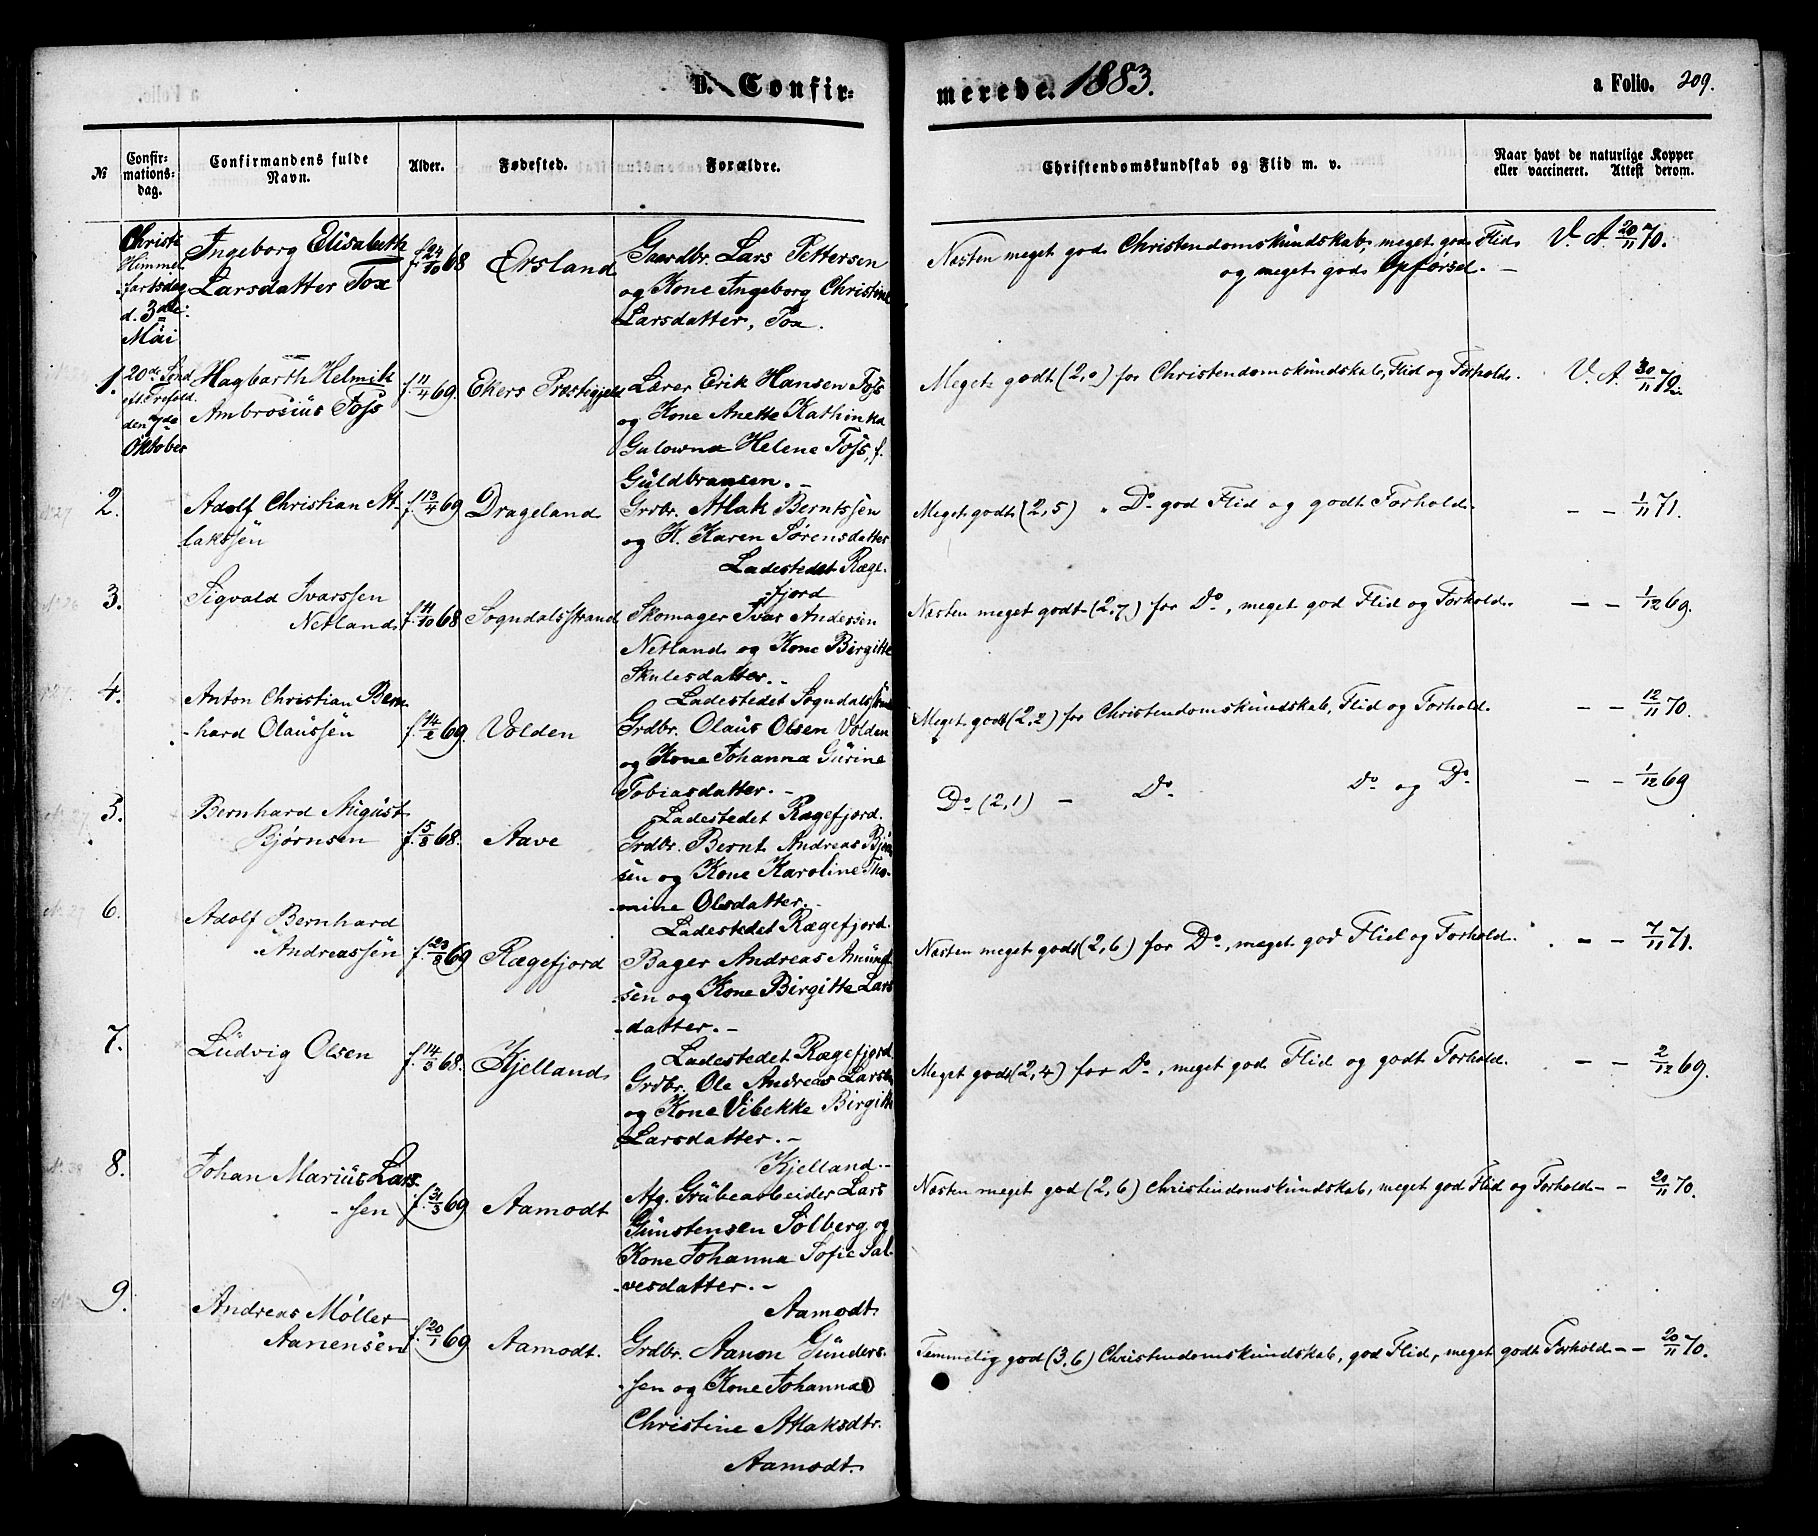 B. Confir-
merede. 1883.
a Folio. 209.
№
Confir-
mations-
dag.
Confirmandens fulde
Navn.
Alder.
Fødested.
Forældre.
Christendomskundskab og Flid m. v.
Naar havt de naturlige Kopper
eller vaccineret. Attest derom.
Christi
Himmel
fartsdag
d. 3die
Mai
Ingeborg Elisabeth
Larsdatter Tox
f. 24/10 68
Ørsland
Gaardbr. Lars Pettersen
og Kone Ingeborg Christine
Larsdatter, Tox.
Næsten meget god Christendomskundskab, meget god Flid
og meget god Opførsel. –
V. A. 20/11 70.
1.
20de Sønd
eft. Trefold.
den 7de
Oktober
Hagbarth Helmik
Ambrosius Foss
f. 11/4 69.
Ekers Præstegjeld
Lærer Erik Hansen Foss
og Kone Anette Kathinka
Galowna Helene Foss, f.
Guldbransen. –
Meget godt (2,0) for Christendomskundskab, Flid og Forhold.
V. A. 30/11 72.
2.
Adolf Christian At-
lakssen
f. 13/4 69
Drageland
Grdbr. Atlak Berntssen
og K. Karen Sørensdatter
Ladestedet Ræge-
fjord
Meget godt (2,5) " Do god Flid og godt Forhold.
– – 1/11 71.
3.
Sigvald Ivarssen
Netland
f. 11/10 68
Sogndalsstrand
Skomager Ivar Andersen
Netland og Kone Birgitte
Skulesdatter. –
Ladestedet Sogndalsstrand
Næsten meget godt (2,7) for Do, meget god Flid og Forhold.
– – 1/12 69.
4.
Anton Christian Bern
-hard Olaussen
f. 14/2 69.
Volden
Grdbr. Olaus Olsen Volden
og Kone Johanna Gurine
Tobiasdatter. –
Ladestedet Rægefjord.
Meget godt (2,2) for Christendomskundskab, Flid og Forhold.
– – 12/11 70.
5.
Bernhard August
Bjørnsen
f. 5/8 68.
Aave
Grdbr. Bernt Andreas Bjørn
sen og Kone Karoline Tho-
-mine Olsdatter. –
Ladestedet Rægefjord.
Do (2,1) – Do Do og Do
– – 1/12 69
6.
Adolf Bernhard
Andreassen
f. 23/3 69
Rægefjord
Bager Andreas Amund
-sen og Kone Birgitte Lars
-datter. –
Ladestedet Rægefjord
Næsten meget godt (2,6) for Do, meget god Flid og Forhold.
– – 7/11 71.
7.
Ludvig Olsen
f. 14/3 68.
Kjelland
Grdbr. Ole Andreas Larsen
og Kone Vibekke Birgitte
Larsdatter. –
Kjelland. –
Meget godt (2,4) for Do, meget god Flid og godt Forhold.
– – 2/12 69.
8.
Johan Marius Lars
-sen
f. 31/3 69
Aamodt
Afg. Grubearbeider Lars
Gunstensen Solberg og
Kone Johanna Sofie Sal-
-vesdatter. –
Aamodt
Næsten meget god (2,6) Christendomskundskab, meget god Flid og Forhold – – 20/11 70.
9.
Andreas Møller
Aanensen
f. 20/1 69
Aamodt.
Grdbr. Aanon Gunders-
-sen og Kone Johanna
Christine Atlaksdtr.
Aamodt.
Temmelig god (3,6) Christendomskundskab, god Flid, meget godt Forhold – – 20/11 70.